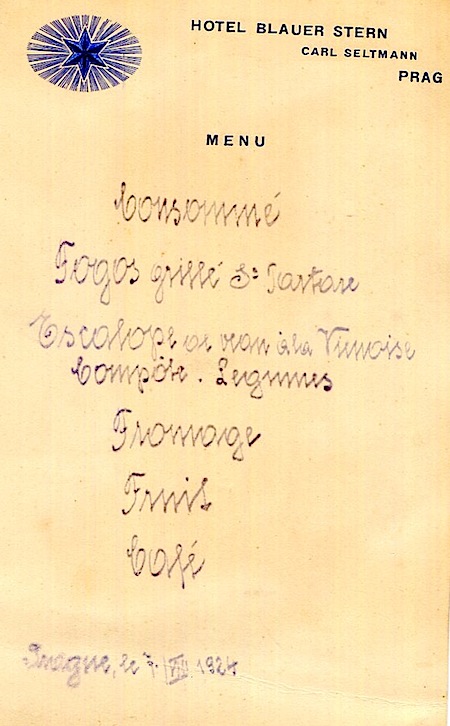 HOTEL BLAUER STERN
CARL SELTMANN
PRAG
MENU
Consommé
Fogos grillé Sᶜᵉ Tartare
Escalope de veau à la Viennoise
Compôte. Legumes
Fromage
Fruits
Café
Prague, le 7. VIII 1924